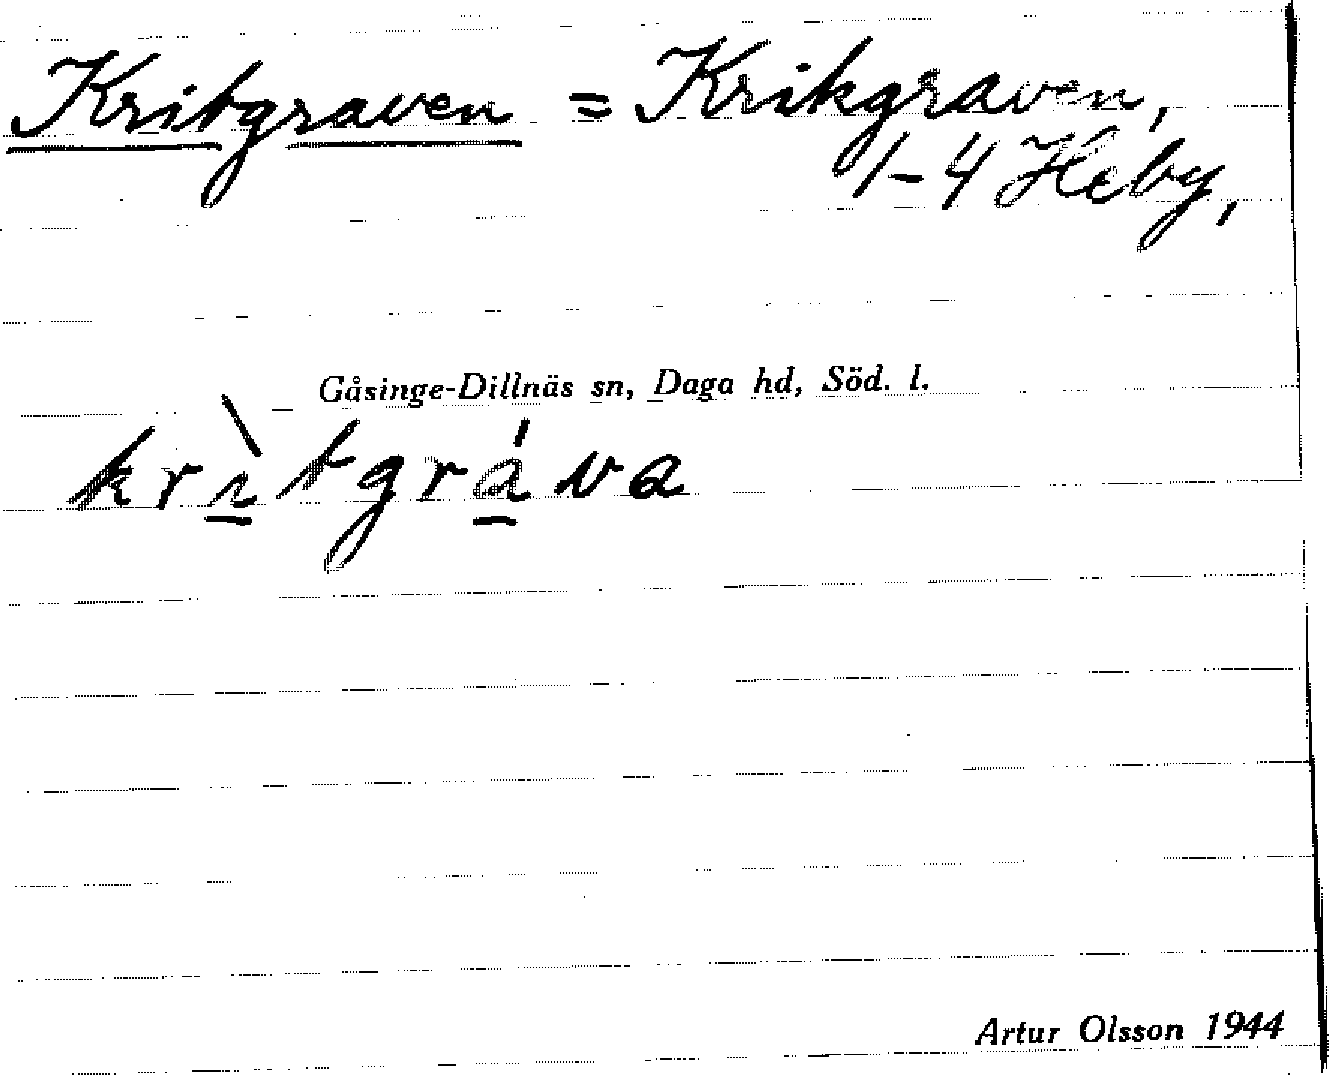 Kritgraven = Krikgraven,
1-4 Heby,
Gåsinge-Dillnäs sn, Daga hd, Söd. l.
krìtgráva
Artur Olsson 1944